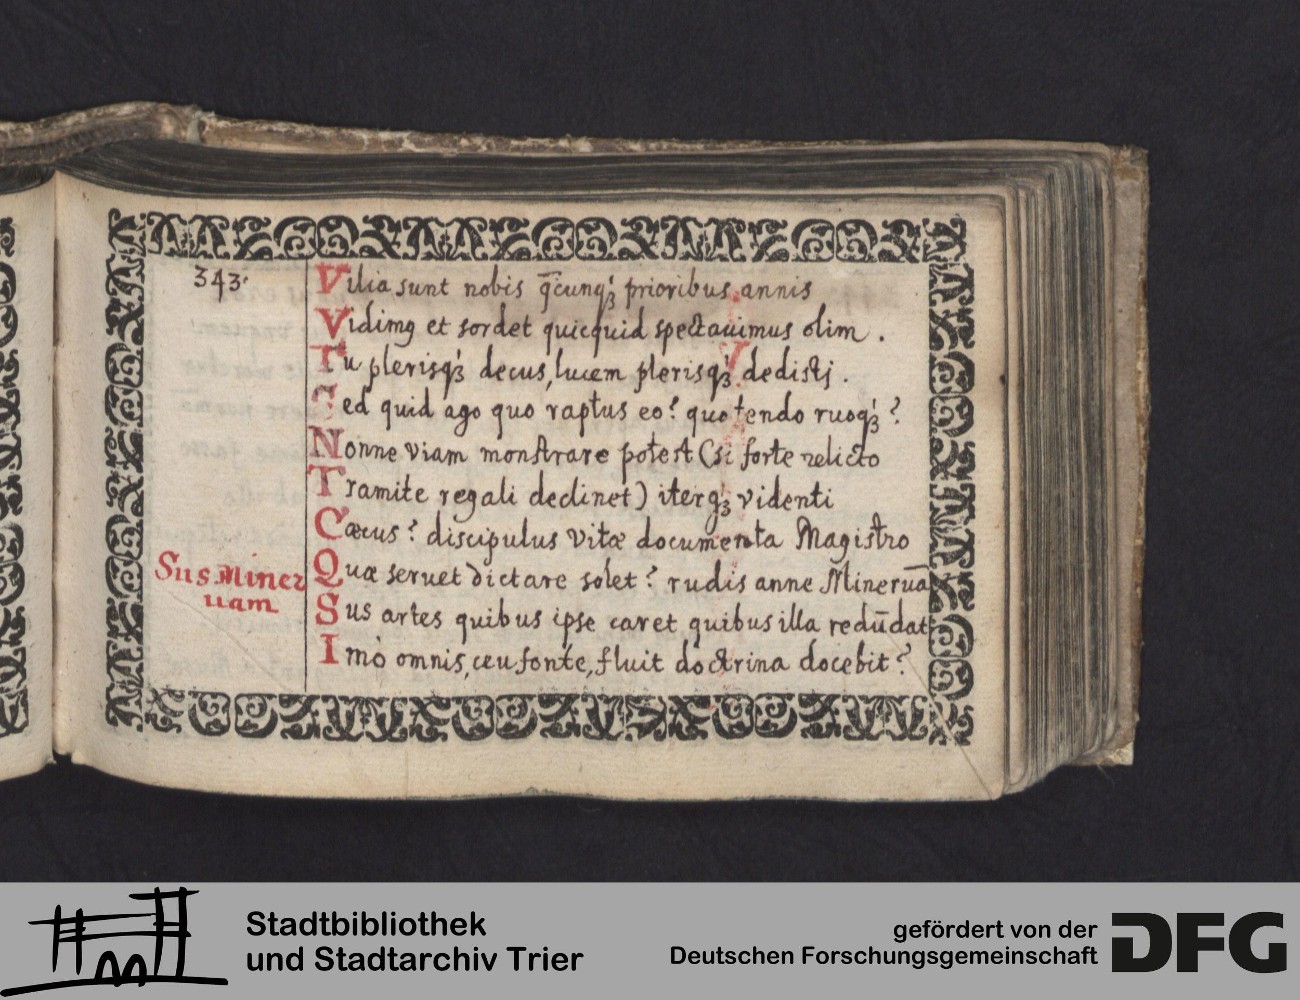 343.
Vilia sunt nobis q̄cunq́ꝫ prioribus annis
Vidimꝯ et sordet quicquid spectauimus olim .
Tu plerisq́ꝫ decus, lucem plerisq́ꝫ dedistj .
Sed quid ago quo raptus eo? quo tendo ruoq́ꝫ ?
Nonne viam monstrare potest (si forte relicto
Tramite regali declinet) iterqꝫ videnti
Cæcus? discipulus vitæ documenta Magistro
Quæ seruet dictare solet? rudis anne Mineruā
Sus artes quibus ipse caret quibus illa redūdat
Imò omnis, ceu fonte, fluit doctrina docebit?
Sus Miner
uam
Stadtbibliothek
und Stadtarchiv Trier
gefördert von der
Deutschen Forschungsgemeinschaft
DFG